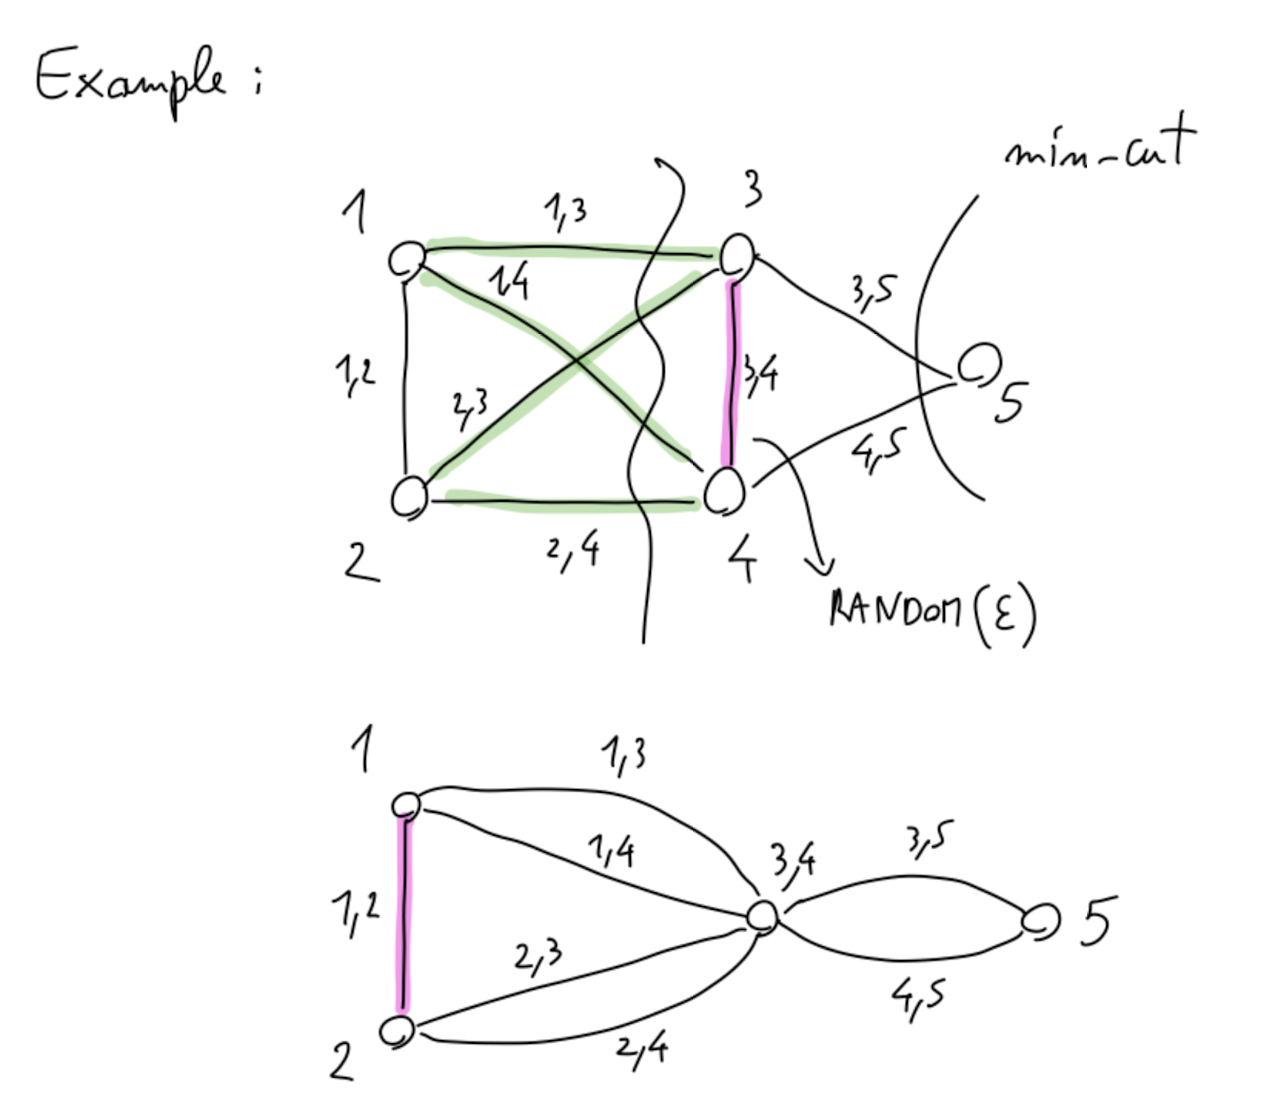 Example:
min-cut
1
1,3
3
1,4
3,5
1,2
3,4
2,3
5
4,5
2
2,4
4
RANDOM(E)
1
1,3
1,4
3,4
3,5
1,2
5
2,3
4,5
2
2,4